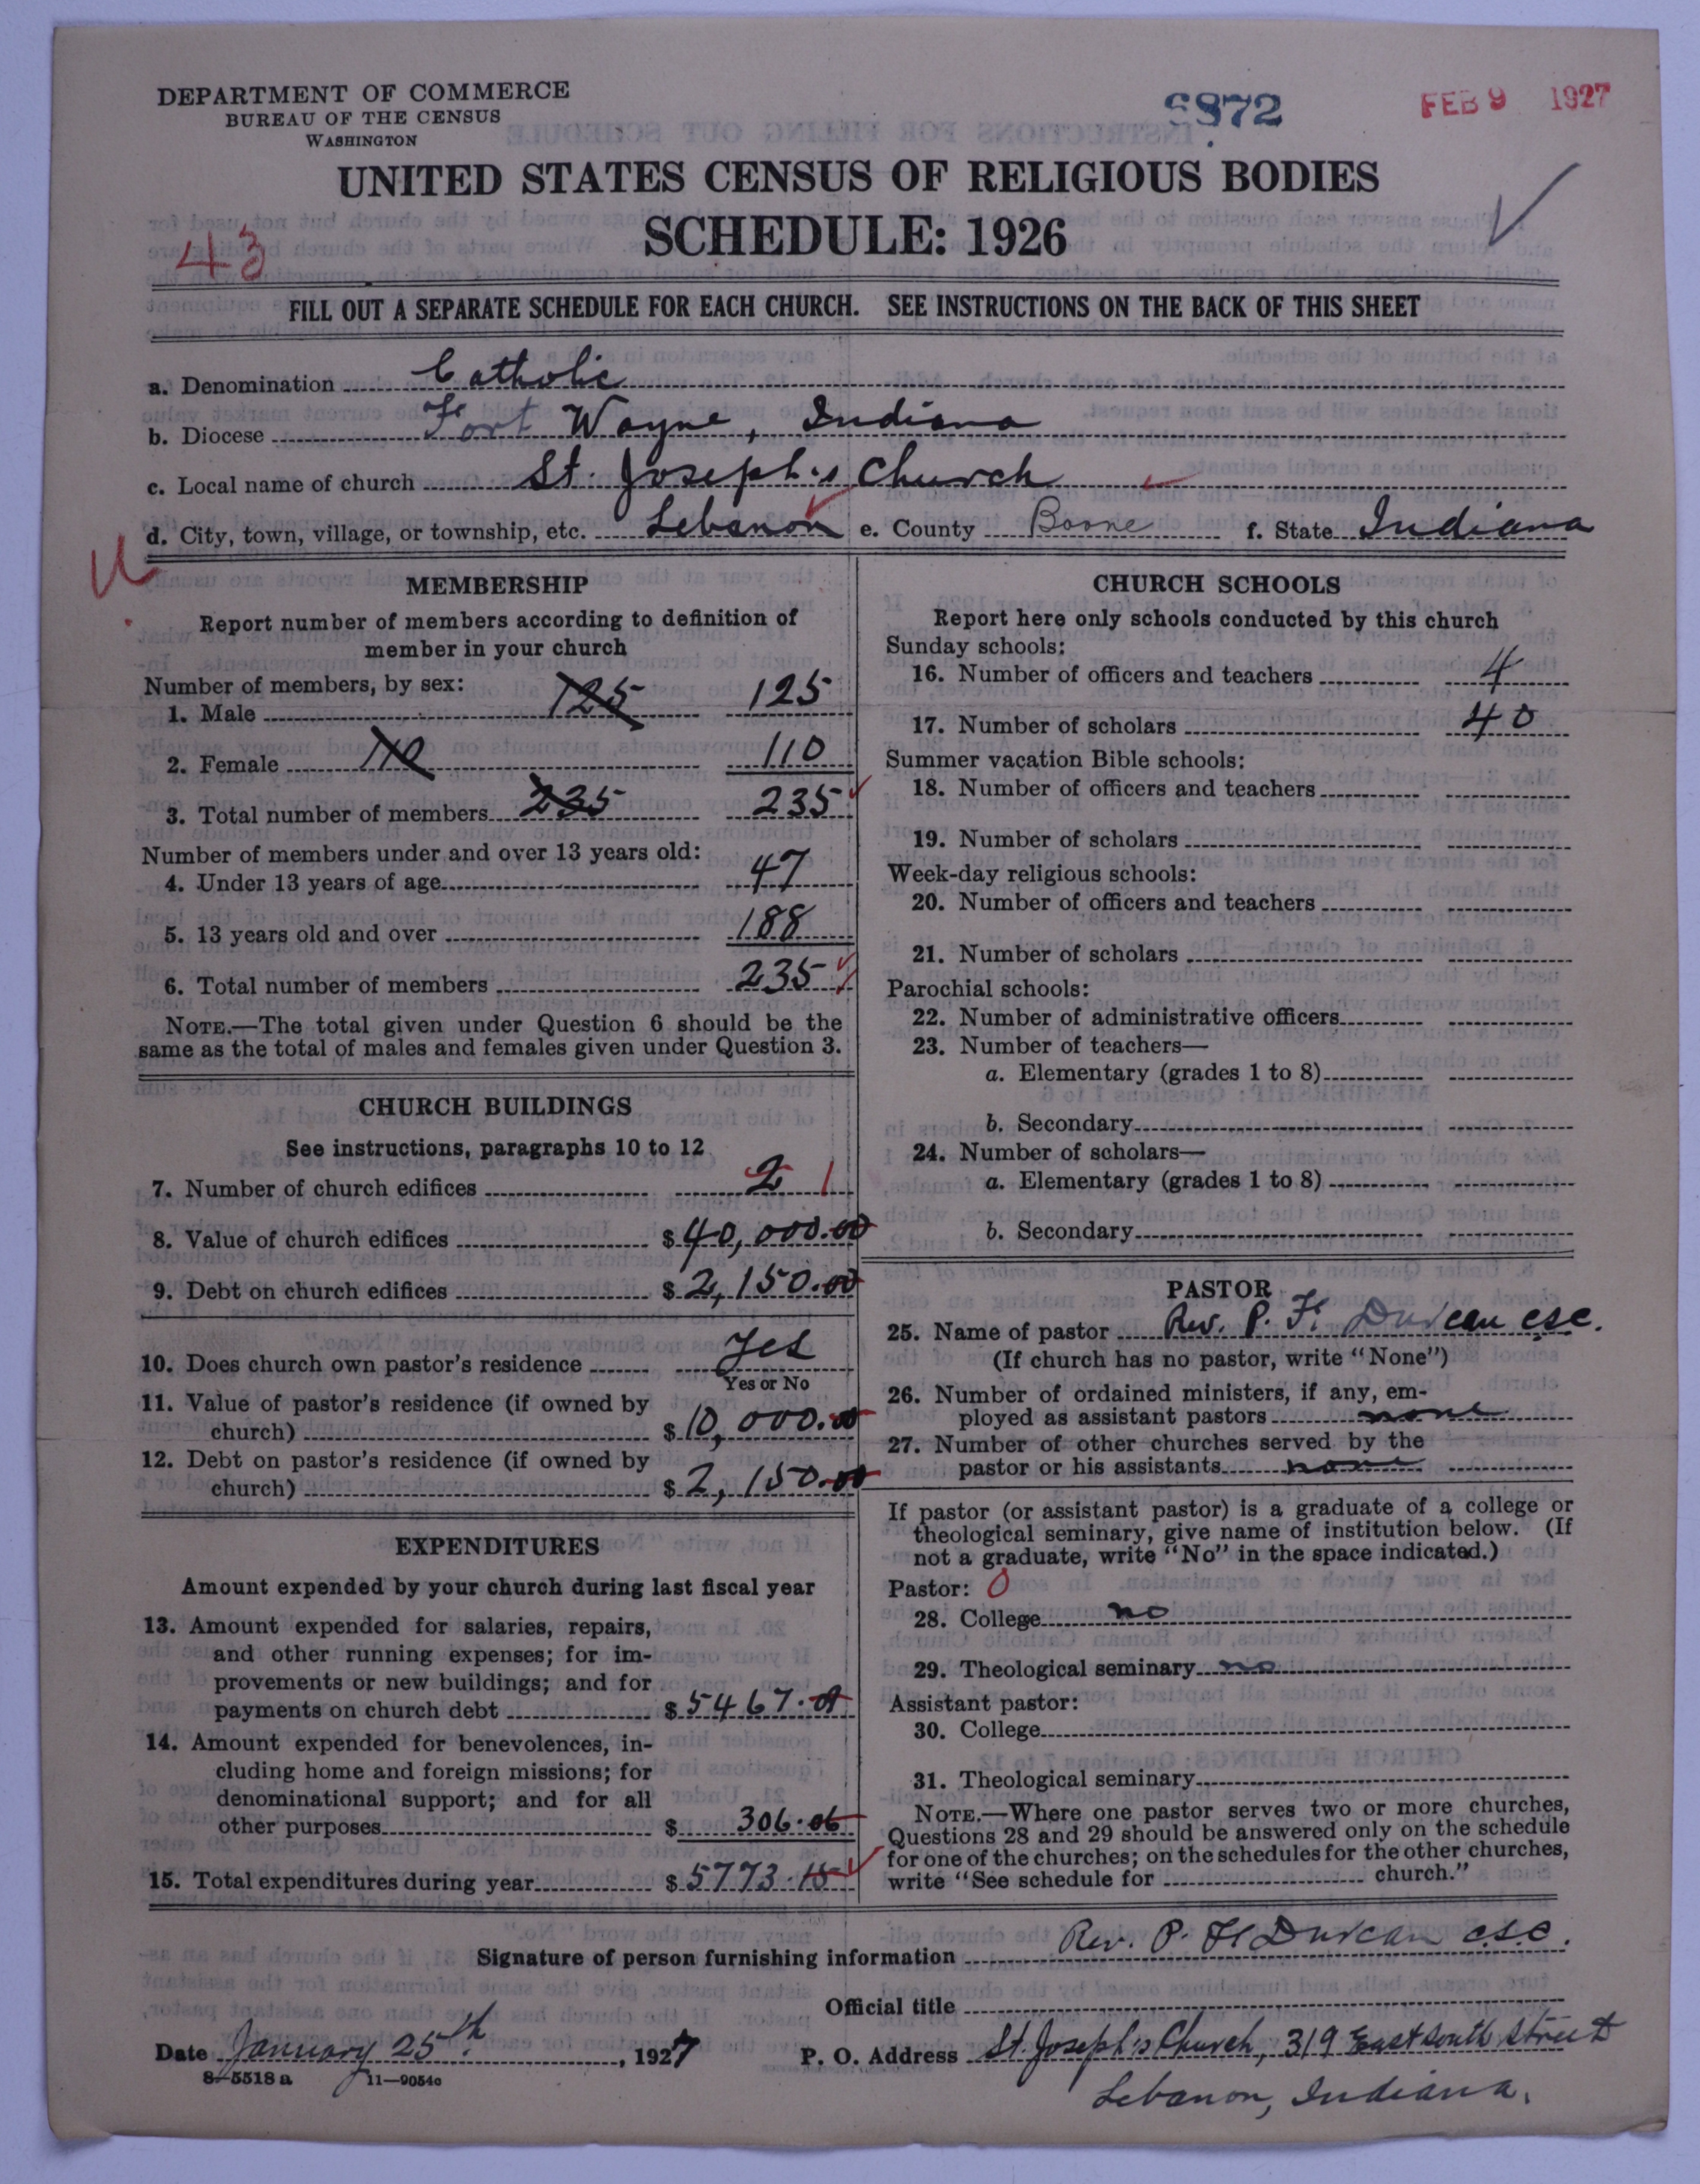 DEPARTMENT OF COMMERCE
BUREAU OF THE CENSUS
WASHINGTON
6872
FEB 9 1927
UNITED STATES CENSUS OF RELIGIOUS BODIES
SCHEDULE: 1926
43
FILL OUT A SEPARATE SCHEDULE FOR EACH CHURCH. SEE INSTRUCTIONS ON THE BACK OF THIS SHEET
a. Denomination Catholic
b. Diocese Fort Wayne, Indiana
c. Local name of church St. Joseph's Church
d. City, town, village, or township, etc. Lebanon e. County Boone f. State Indiana
MEMBERSHIP
Report number of members according to definition of
member in your church
Number of members, by sex:
1. Male 125 125
2. Female 110 110
3. Total number of members 235 235
Number of members under and over 13 years old:
4. Under 13 years of age 47
5. 13 years old and over 188
6. Total number of members 235
NOTE.—The total given under Question 6 should be the
same as the total of males and females given under Question 3.
CHURCH BUILDINGS
See instructions, paragraphs 10 to 12
7. Number of church edifices 2 1
8. Value of church edifices $ 40,000.00
9. Debt on church edifices $ 2,150.00
10. Does church own pastor's residence Yes
Yes or No
11. Value of pastor's residence (if owned by
church) $ 10,000.00
12. Debt on pastor's residence (if owned by
church) $ 2,150.00
EXPENDITURES
Amount expended by your church during last fiscal year
13. Amount expended for salaries, repairs,
and other running expenses; for im-
provements or new buildings; and for
payments on church debt $ 5467.
14. Amount expended for benevolences, in-
cluding home and foreign missions; for
denominational support; and for all
other purposes $ 306.06
15. Total expenditures during year $ 5773.15
CHURCH SCHOOLS
Report here only schools conducted by this church
Sunday schools:
16. Number of officers and teachers 4
17. Number of scholars 40
Summer vacation Bible schools:
18. Number of officers and teachers
19. Number of scholars
Week-day religious schools:
20. Number of officers and teachers
21. Number of scholars
Parochial schools:
22. Number of administrative officers
23. Number of teachers—
a. Elementary (grades 1 to 8)
b. Secondary
24. Number of scholars—
a. Elementary (grades 1 to 8)
b. Secondary
PASTOR
25. Name of pastor Rev. P. H. Durcan csc.
(If church has no pastor, write "None")
26. Number of ordained ministers, if any, em-
ployed as assistant pastors none
27. Number of other churches served by the
pastor or his assistants none
If pastor (or assistant pastor) is a graduate of a college or
theological seminary, give name of institution below. (If
not a graduate, write "No" in the space indicated.)
Pastor: 0
28. College no
29. Theological seminary no
Assistant pastor:
30. College
31. Theological seminary
NOTE.—Where one pastor serves two or more churches,
Questions 28 and 29 should be answered only on the schedule
for one of the churches; on the schedules for the other churches,
write "See schedule for church."
Signature of person furnishing information Rev. P. H Durcan c.s.c.
Official title
Date January 25th, 1927 P. O. Address St. Joseph's Church, 319 East South Street
8-5518a 11-9054c
Lebanon, Indiana.